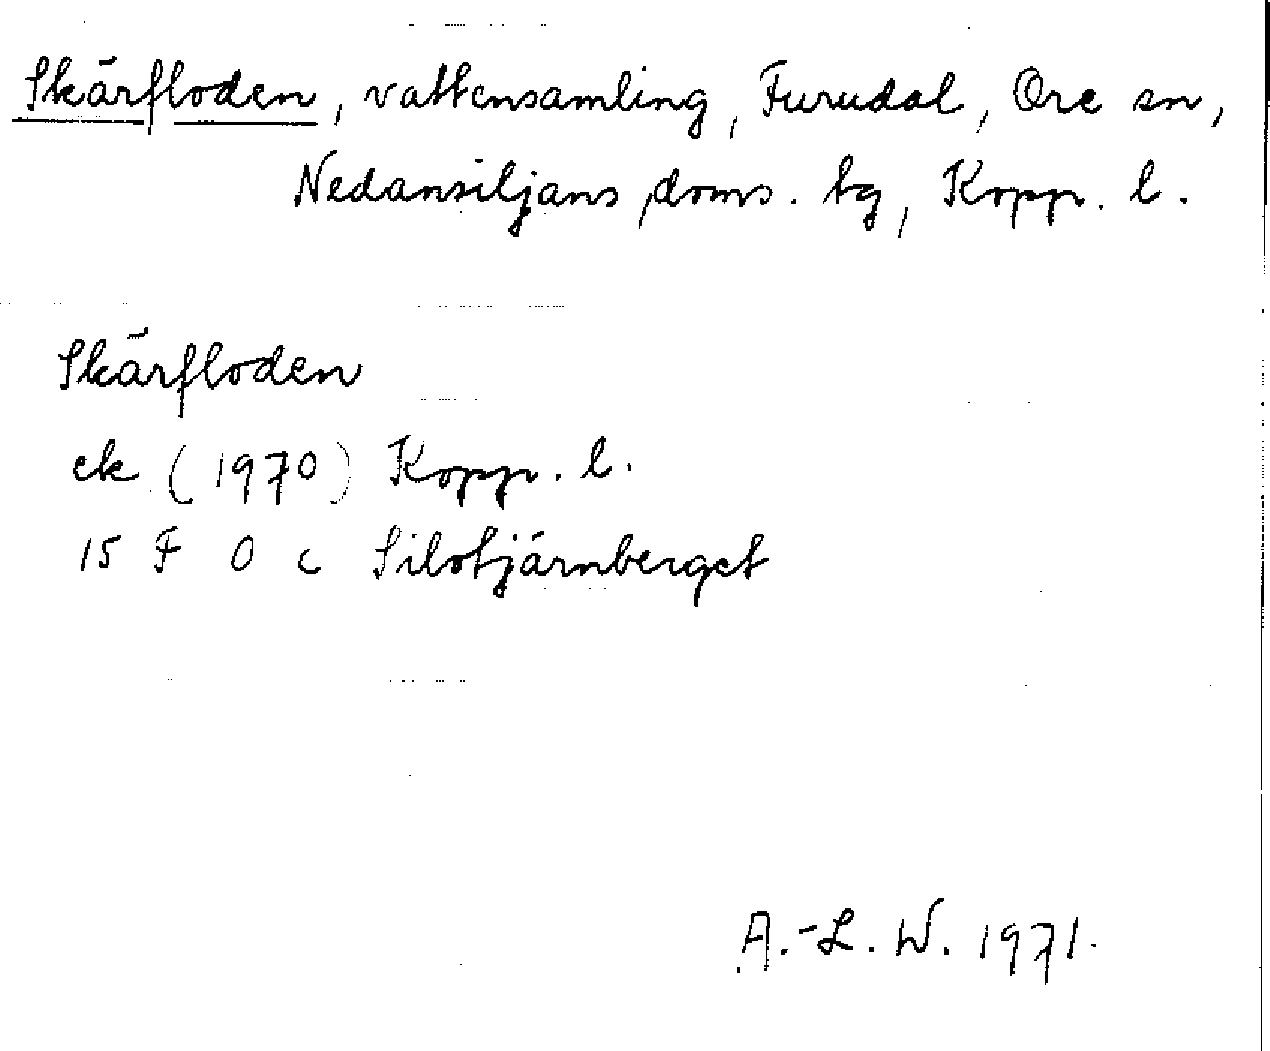 Skärfloden, vattensamling, Furudal, Ore sn,
Nedansiljans doms. tg, Kopp. l.
Skärfloden
ek (1970) Kopp. l.
15 F 0 c Silotjärnberget
A.-L. W. 1971.